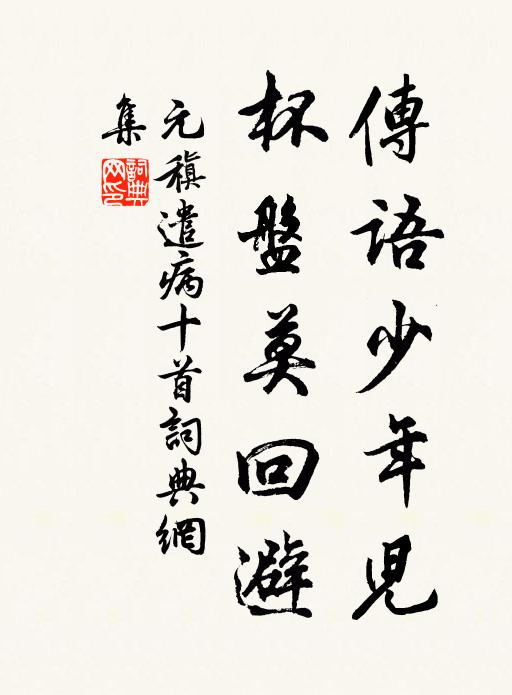 傳語少年兒
杯盤莫回避
元稹遣病十首詞典網
集
詞典網印